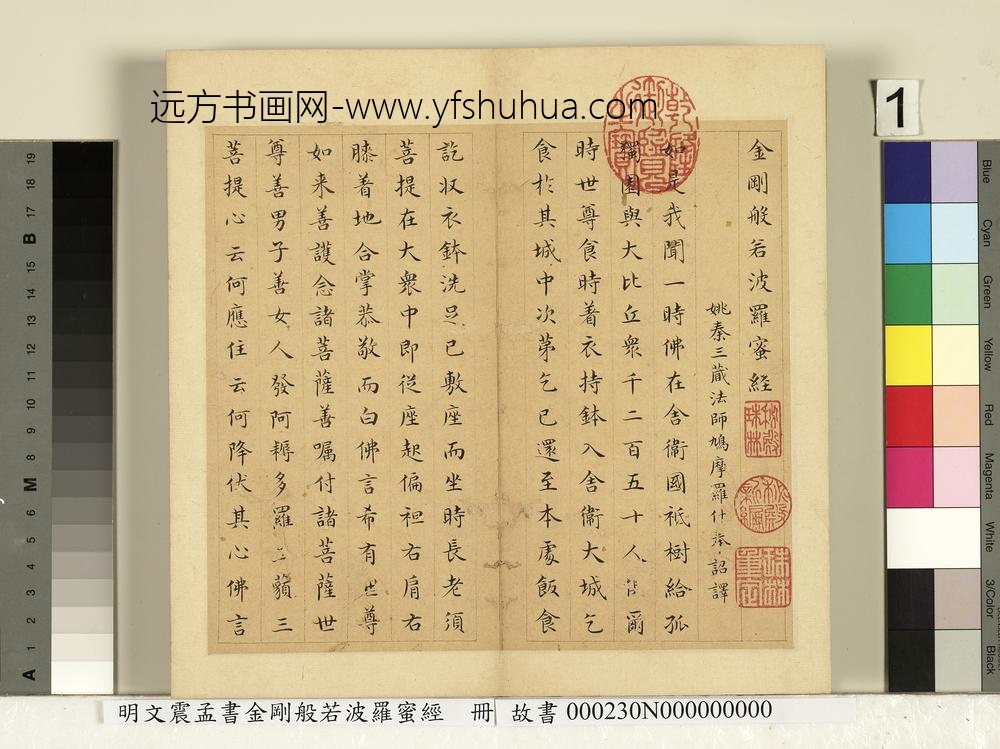 远方书画网-www.yfshuhua.com
1
金剛般若波羅蜜經
姚秦三藏法師鳩摩羅什奉詔譯
如是我聞一時佛在舍衛國祇樹給孤
獨園與大比丘衆千二百五十人俱爾
時世尊食時着衣持鉢入舍衛大城乞
食於其城中次苐乞已還至本處飯食
訖収衣鉢洗足已敷座而坐時長老須
菩提在大衆中即從座起偏袒右肩右
膝着地合掌恭敬而白佛言希有世尊
如来善護念諸菩薩善嘱付諸菩薩世
尊善男子善女人發阿耨多羅三藐三
菩提心云何應住云何降伏其心佛言
乾隆御覽之寶
秘殿珠林
秘殿新編
珠林重定
明文震孟書金剛般若波羅蜜經 冊 故書 000230N000000000
A 1 2 3 4 5 6 M 8 9 10 11 12 13 14 15 B 17 18 19
Blue
Cyan
Green
Yellow
Red
Magenta
White
3/Color
Black